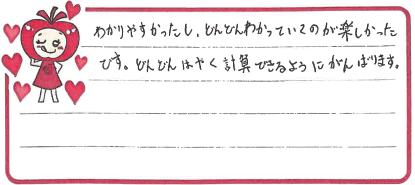 わかりやすかったし、どんどんわかっていくのが楽しかった
です。どんどんはやく計算できるようにがんばります。